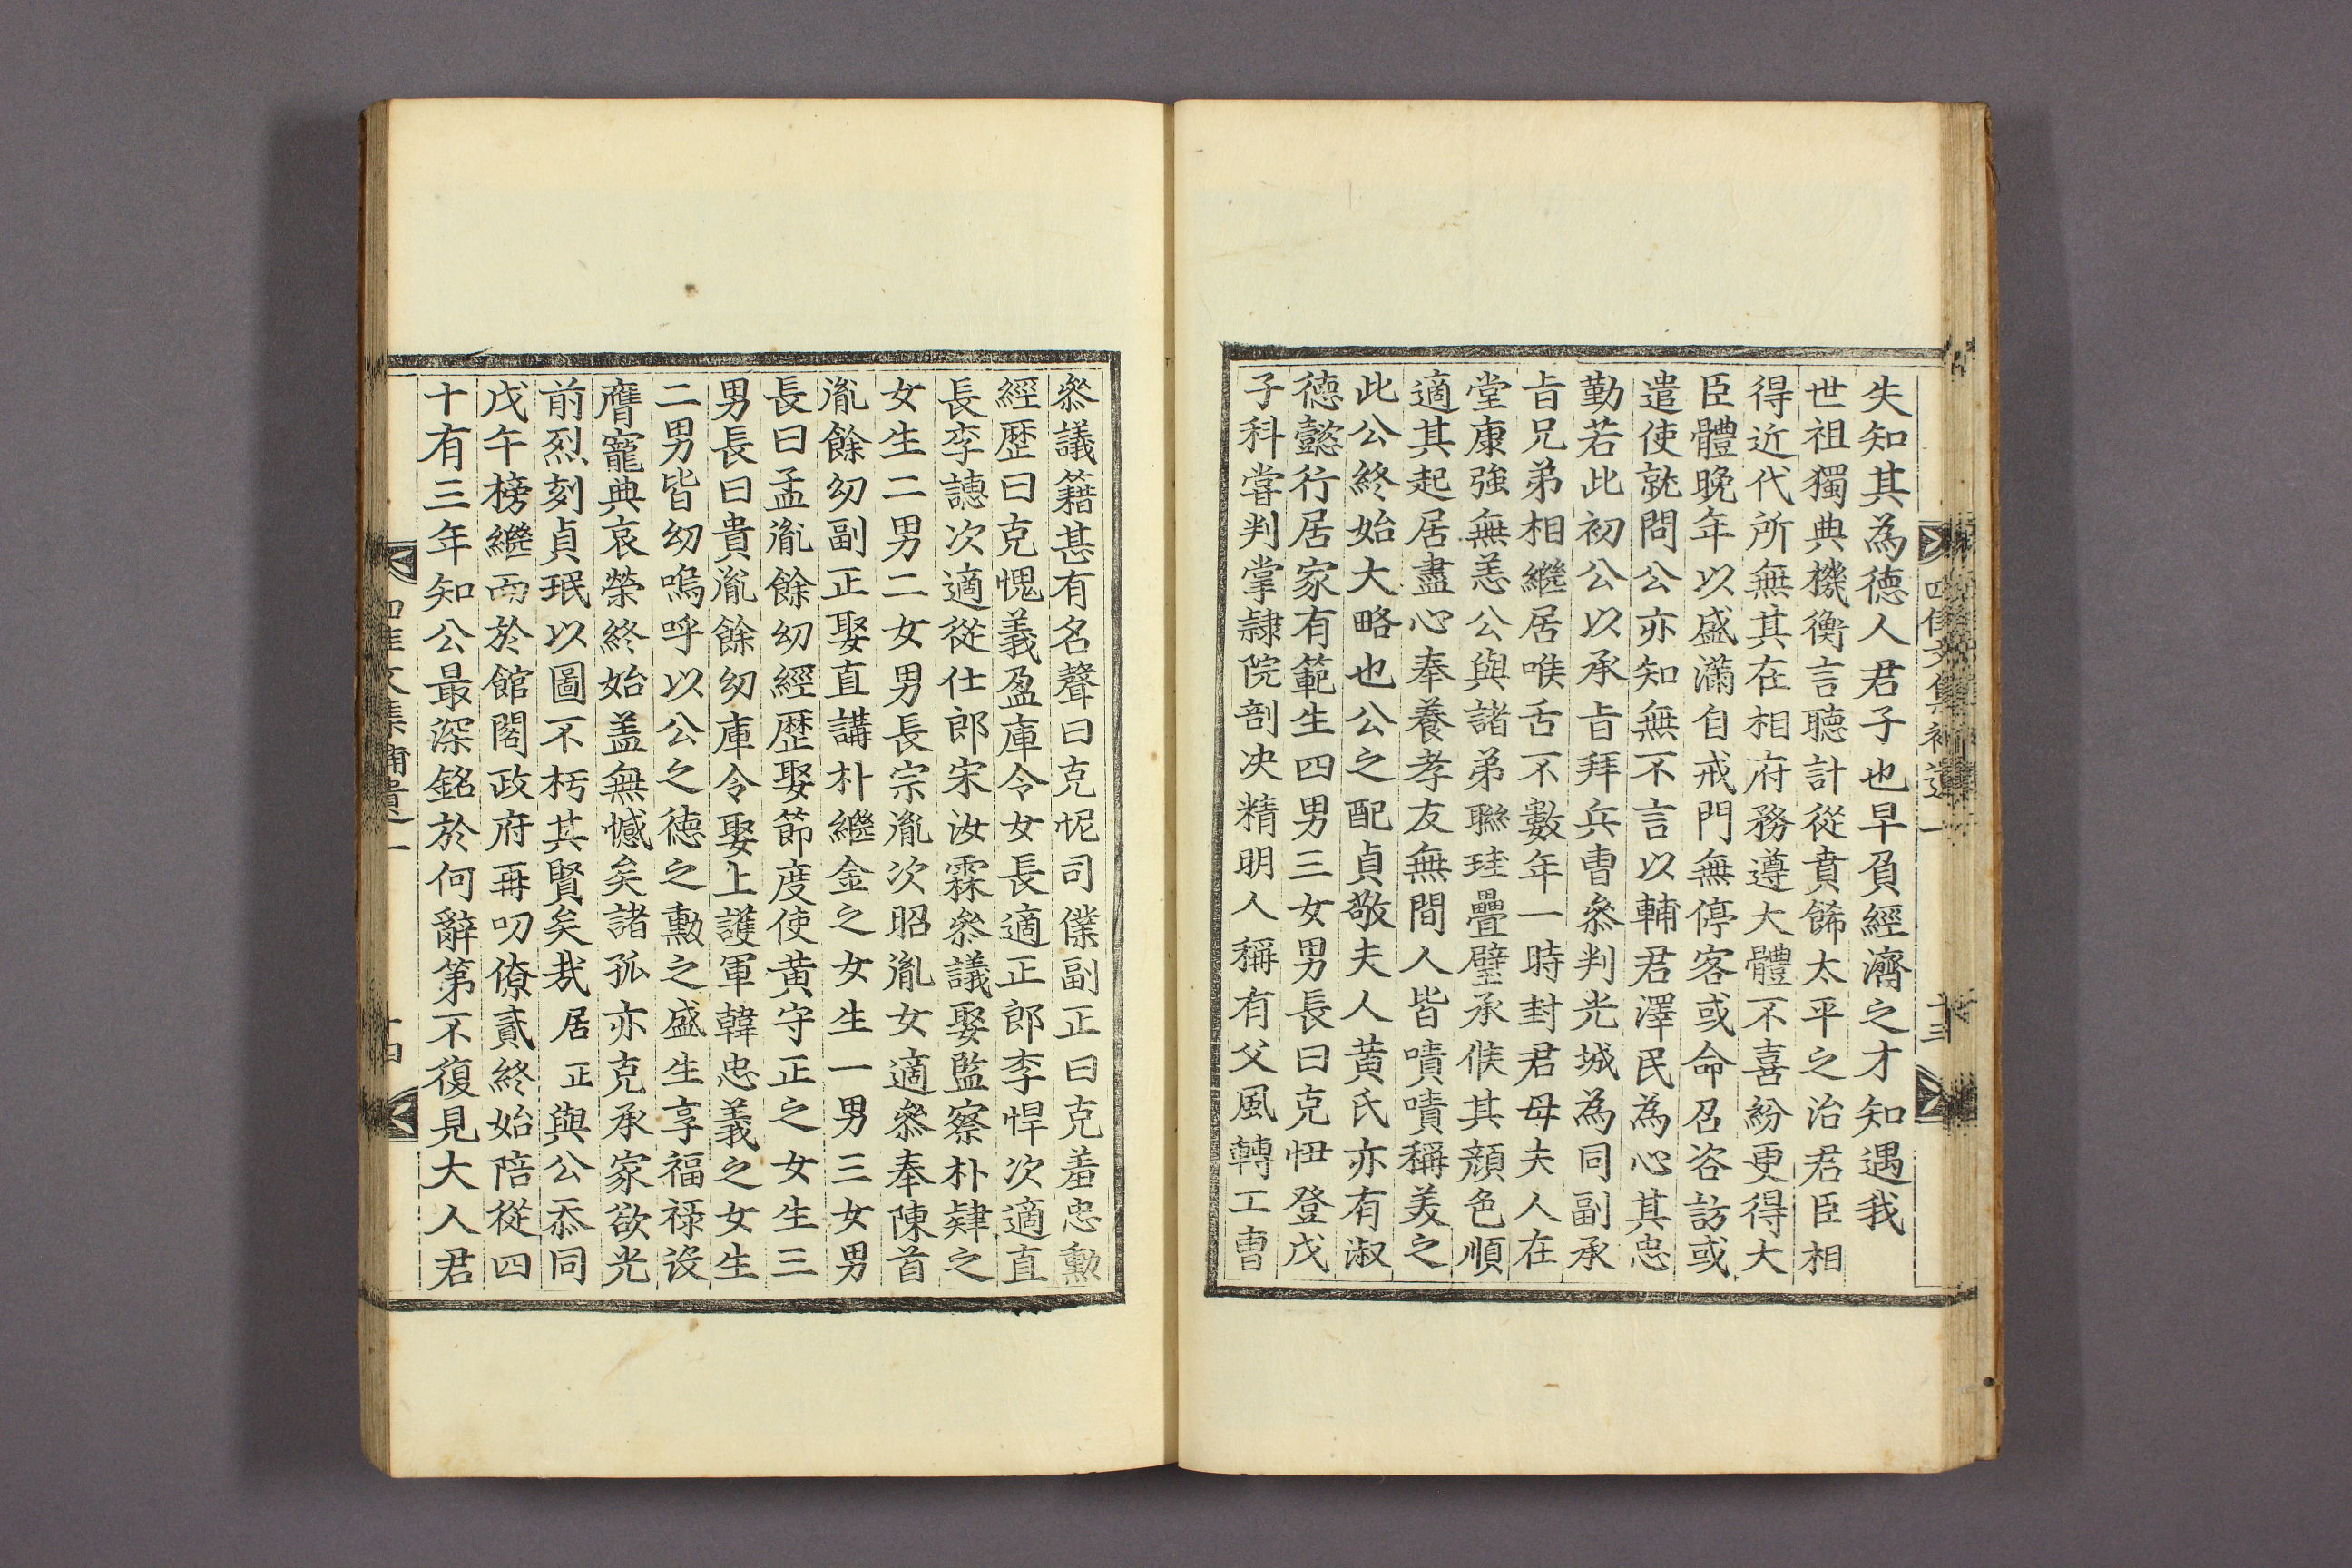 失知其為德人君子也早負經濟之才知遇我
世祖獨典機衡言聽計從賁餙太平之治君臣相
得近代所無其在相府務遵大體不喜紛更得大
臣體晚年以盛滿自戒門無停客或命召咨訪或
遣使就問公亦知無不言以輔君澤民為心其忠
勤若此初公以承旨拜兵曹叅判光城為同副承
旨兄弟相繼居喉舌不數年一時封君母夫人在
堂康強無恙公與諸弟聯珪疊璧承候其顔色順
適其起居盡心奉養孝友無間人皆嘖嘖稱美之
此公終始大略也公之配貞敬夫人黄氏亦有淑
德懿行居家有範生四男三女男長曰克忸登戊
子科嘗判掌隷院剖决精明人稱有父風轉工曹
叅議籍甚有名聲曰克怩司僕副正曰克羞忠勳
經歷曰克愧義盈庫令女長適正郎李悍次適直
長李譓次適從仕郎宋汝霖叅議娶監察朴肄之
女生二男二女男長宗胤次昭胤女適叅奉陳首
胤餘幼副正娶直講朴繼金之女生一男三女男
長曰孟胤餘幼經歷娶節度使黄守正之女生三
男長曰貴胤餘幼庫令娶上護軍韓忠義之女生
二男皆幼嗚呼以公之德之勳之盛生享福祿沒
膺寵典哀榮終始盖無憾矣諸孤亦克承家欲光
前烈刻貞珉以圖不朽其賢矣哉居正與公忝同
戊午榜繼而於館閣政府再叨僚貳終始陪從四
十有三年知公最深銘於何辭第不復見大人君